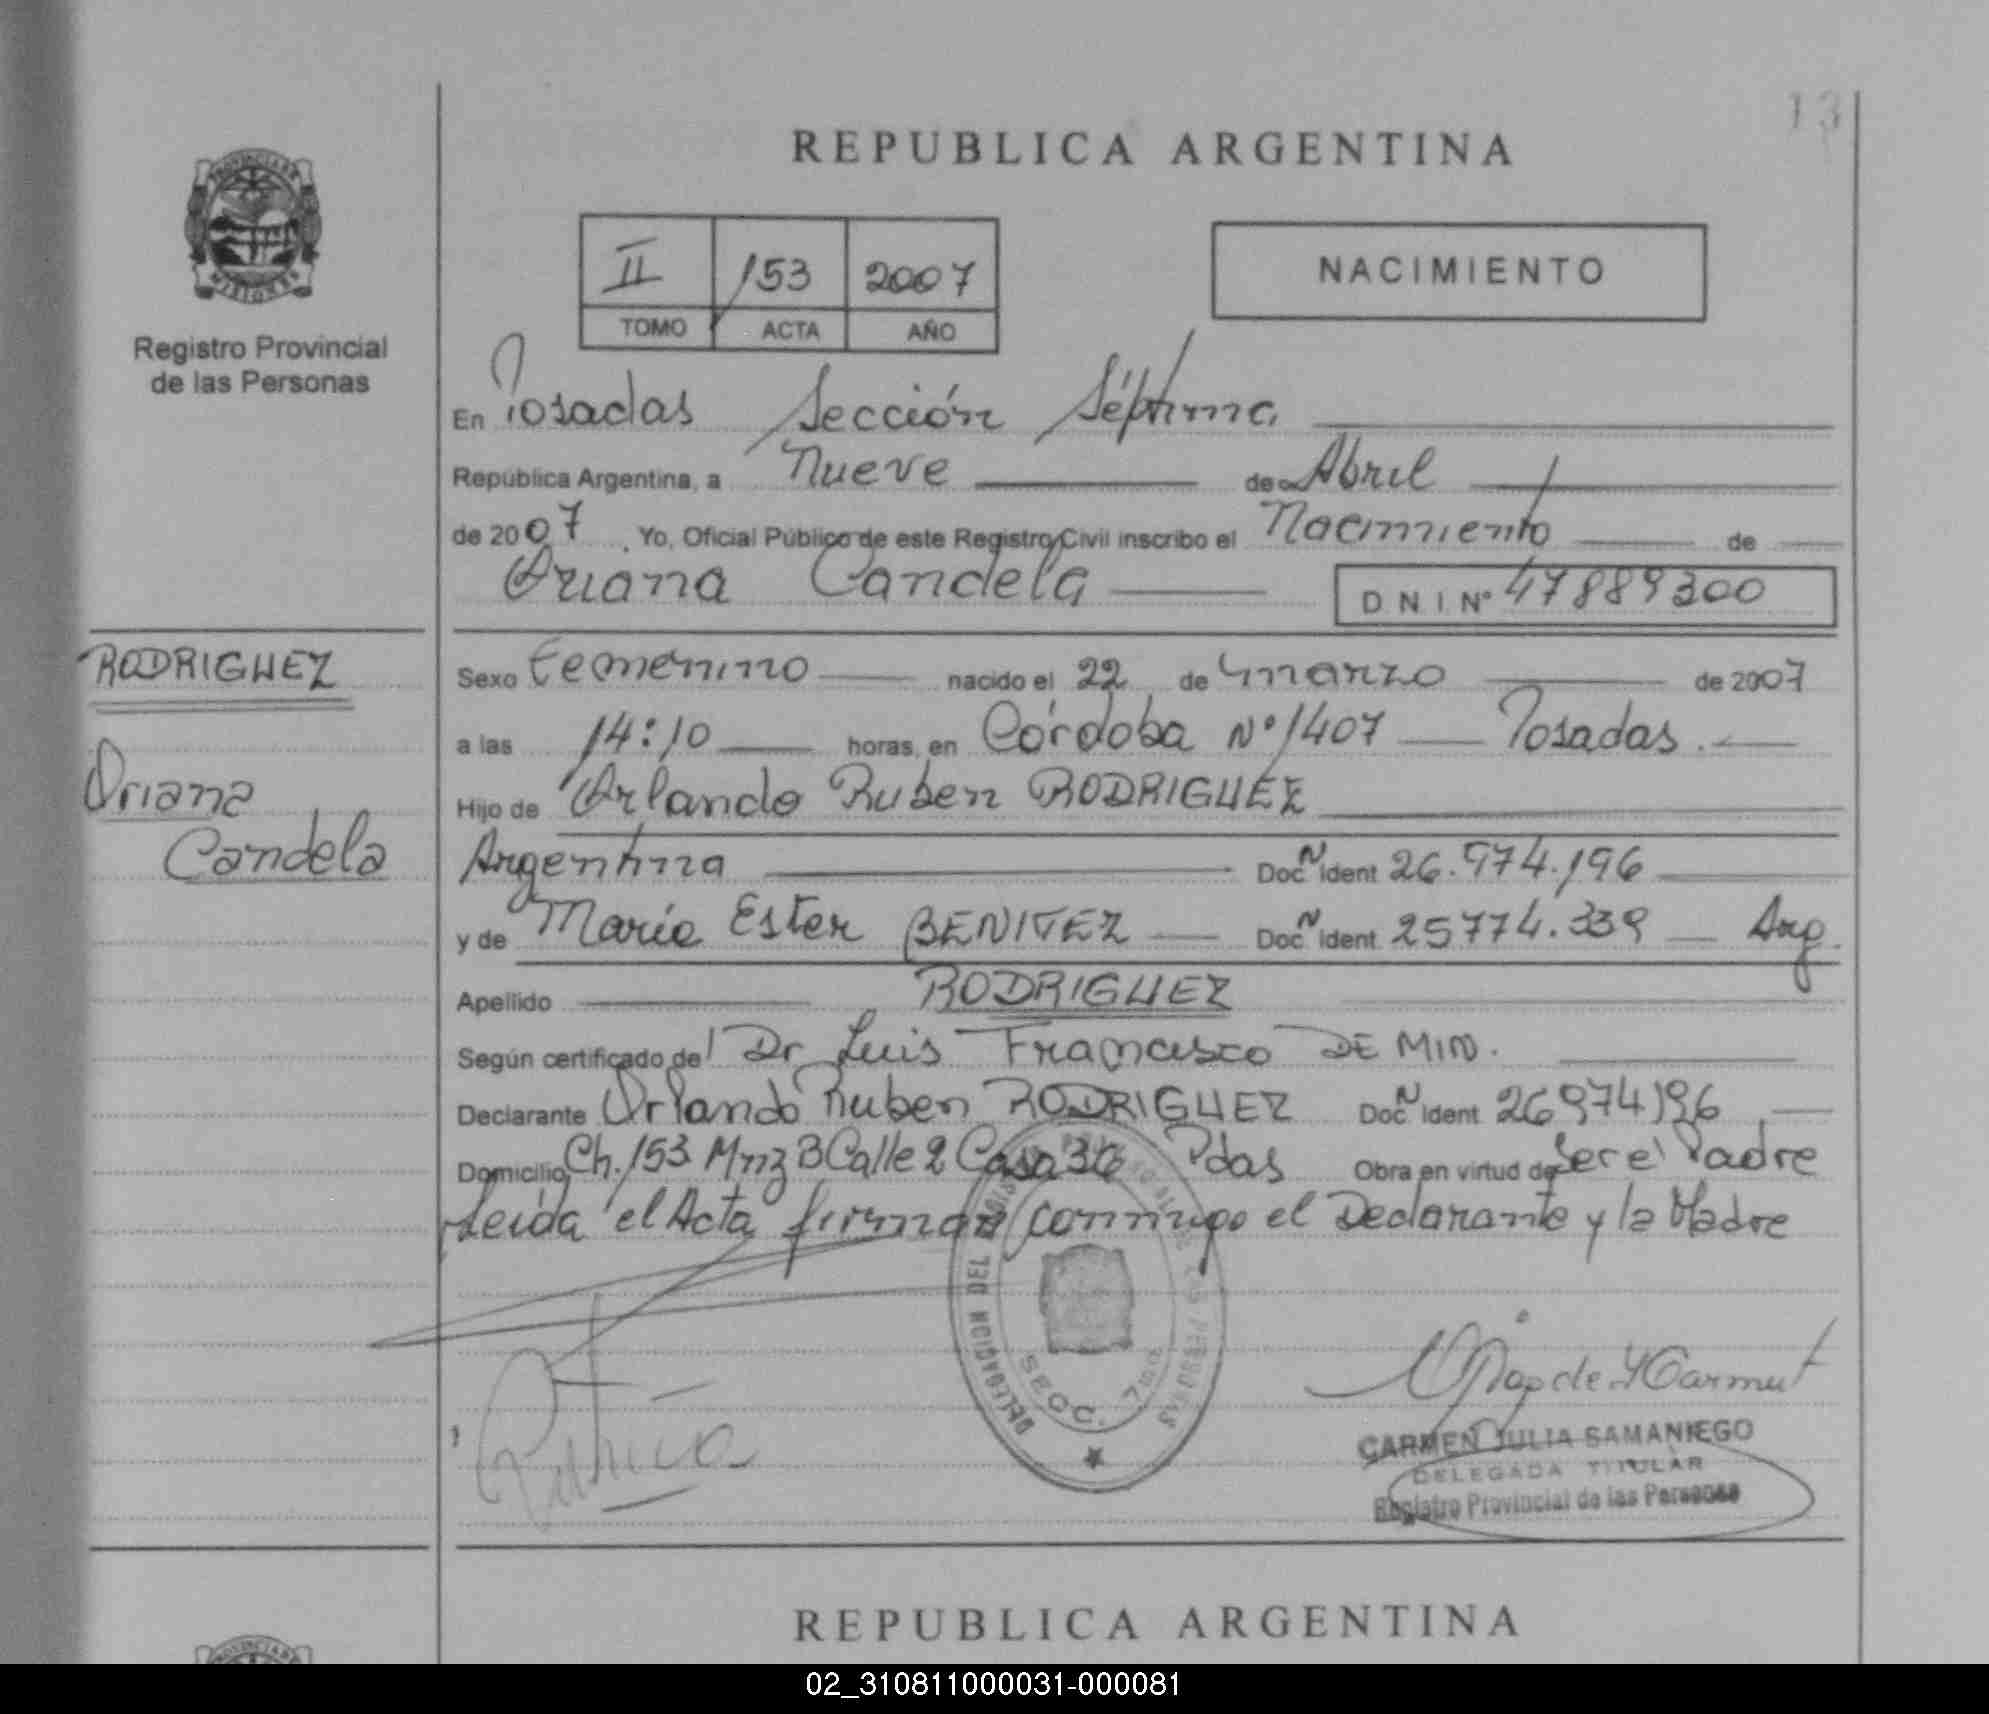 13
REPUBLICA ARGENTINA
PROVINCIA DE
MISIONES
Registro Provincial
de las Personas
II 153 2007
TOMO ACTA AÑO
NACIMIENTO
En Posadas Sección Séptima
República Argentina, a Nueve de Abril
de 2007, Yo, Oficial Público de este Registro Civil inscribo el Nacimiento de
Oriana Candela D N I Nº 47889300
RODRIGUEZ
Oriana
Candela
Sexo Femenino nacido el 22 de marzo de 2007
a las 14:10 horas, en Córdoba Nº 1407 Posadas.
Hijo de Orlando Ruben RODRIGUEZ
Argentina Doc. N Ident 26.974.196
y de María Ester BENITEZ Doc. N Ident 25774.339 Arg.
Apellido RODRIGUEZ
Según certificado del Dr Luis Francisco DE MIN.
Declarante Orlando Ruben RODRIGUEZ Doc N Ident 26974196
Domicilio Ch. 153 Mnz B Calle 2 Casa 36 Pdas Obra en virtud de ser el Padre
Leída el Acta firman conmigo el Declarante y la Madre
DELEGACION DEL REGISTRO DE LAS PERSONAS
SECC. 7ma
CARMEN JULIA SAMANIEGO
DELEGADA TITULAR
Registro Provincial de las Personas
REPUBLICA ARGENTINA
02_310811000031-000081